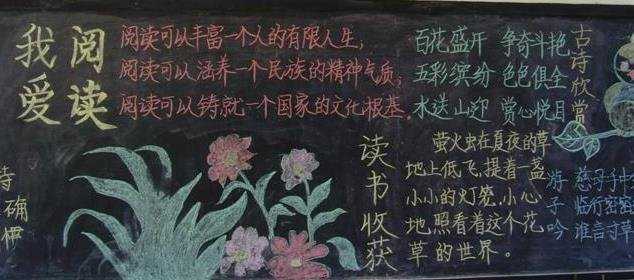 我爱阅读
阅读可以丰富一个人的有限人生;
阅读可以涵养一个民族的精神气质;
阅读可以铸就一个国家的文化根基.
百花盛开 争奇斗艳
五彩缤纷 色色俱全
水送山迎 赏心悦目
古诗欣赏
读书收获
萤火虫在夏夜的草
地上低飞,提着一盏
小小的灯笼,小心
地照看着这个花
草的世界。
游子吟
慈母手中
临行密密
谁言寸草
诗
确